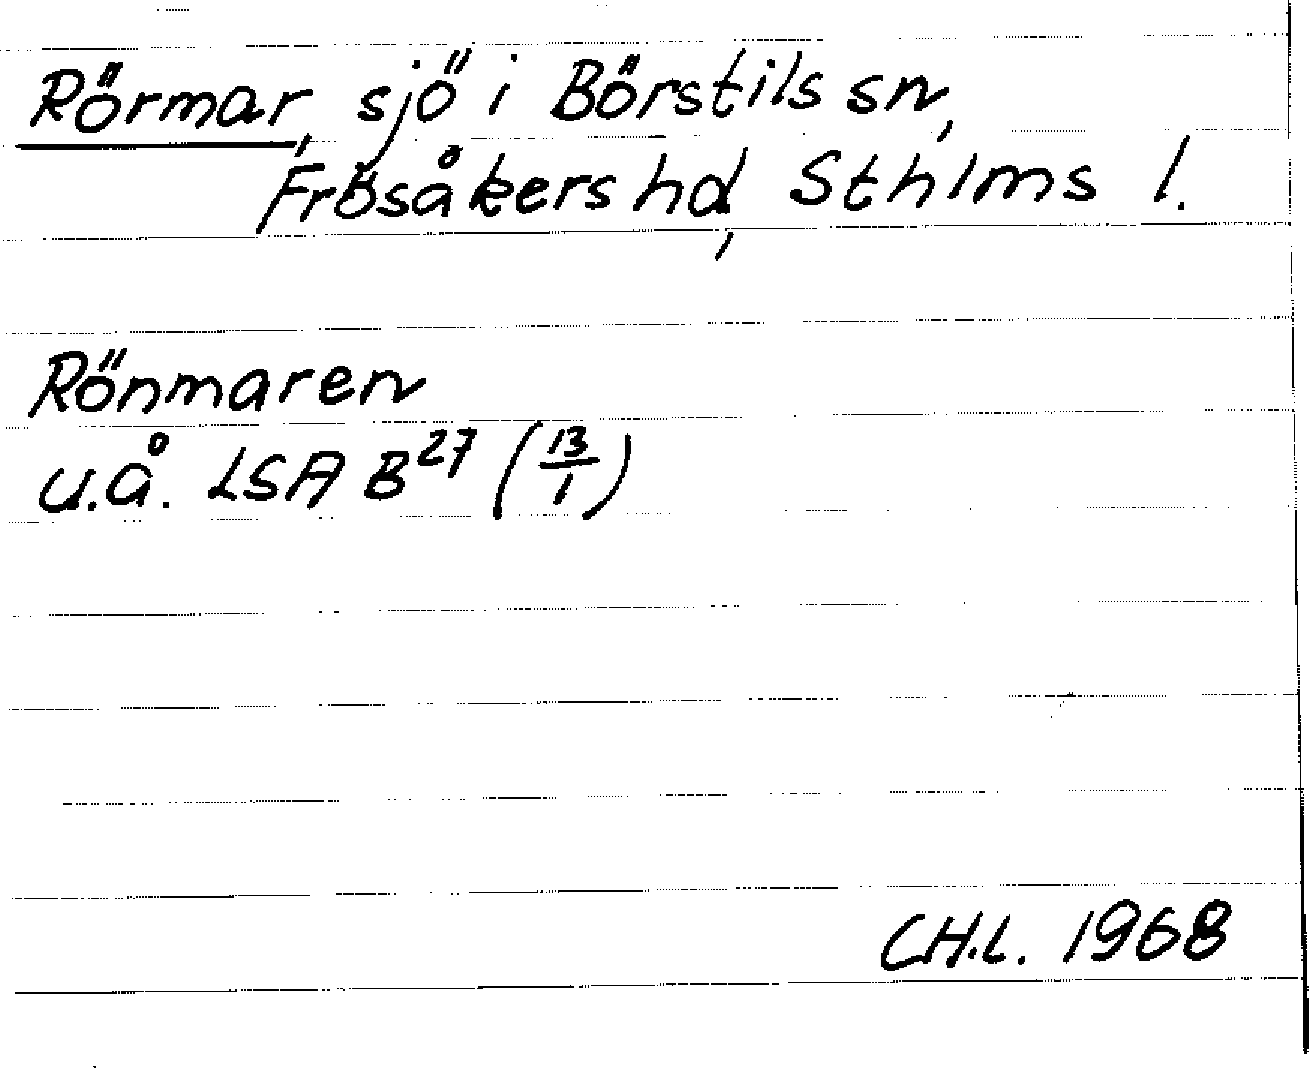 Rörmar, sjö i Börstils sn,
Frösåkers hd, Sthlms l.
Rönmaren
u.å. LSA B27 (13/1)
CH.L. 1968